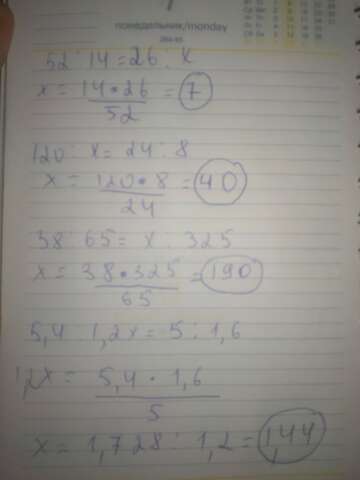 понедельник/monday
52 : 14 = 26 : x
x = 14 • 26 / 52 = 7
120 : x = 24 : 8
x = 120 • 8 / 24 = 40
38 : 65 = x : 325
x = 38 • 325 / 65 = 190
5,4 : 1,2x = 5 : 1,6
1,2x = 5,4 • 1,6 / 5
x = 1,728 : 1,2 = 1,44